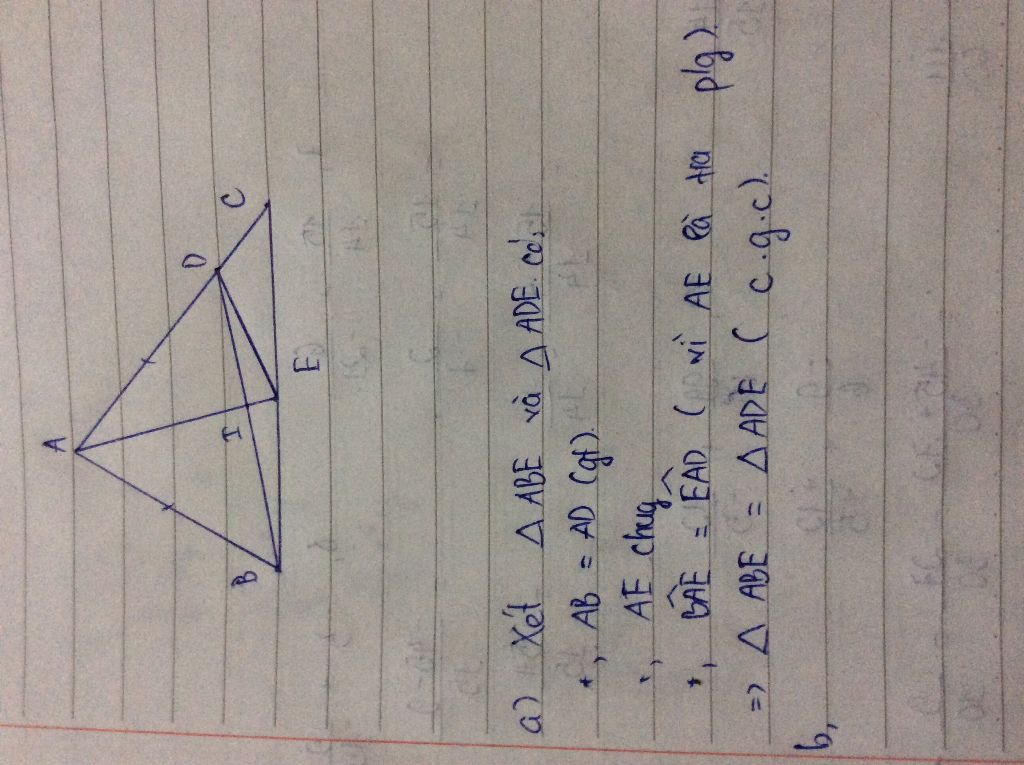 A
D
C
I
B
E
a) Xét △ABE và △ADE có:
*, AB = AD (gt).
*, AE chug
*, BÂE = EÂD (vì AE là tia p/g).
=> △ABE = △ADE (c.g.c).
b,